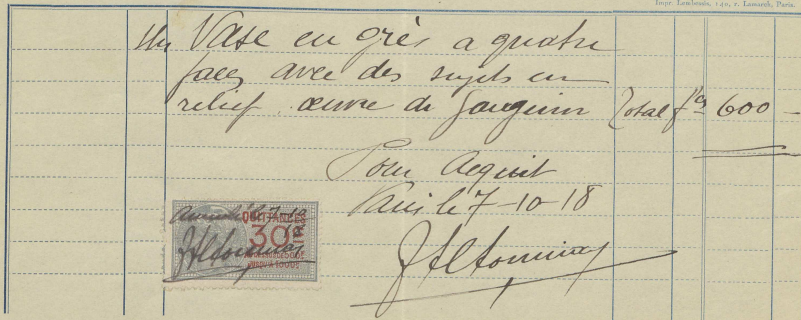 Impr. Lombessis, 140, r. Lamarck, Paris.
Un Vase en grès a quatre
faces avec des sujets en
relief. œuvre de Gauguin Total frs 600 -
Pour Acquit
Paris le 7-10-18
QUITTANCES
30